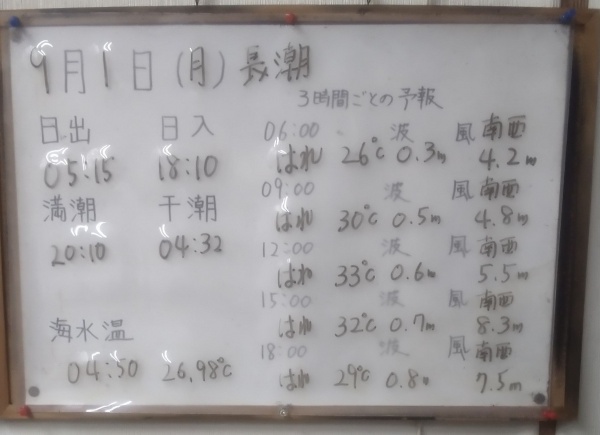 9月1日(月)長潮
3時間ごとの予報
日出 日入
05:15 18:10
満潮 干潮
20:10 04:32
海水温
04:50 26,98℃
06:00 波 風 南西
はれ 26℃ 0.3m 4.2m
09:00 波 風 南西
はれ 30℃ 0.5m 4.8m
12:00 波 風 南西
はれ 33℃ 0.6m 5.5m
15:00 波 風 南西
はれ 32℃ 0.7m 8.3m
18:00 波 風 南西
はれ 29℃ 0.8m 7.5m